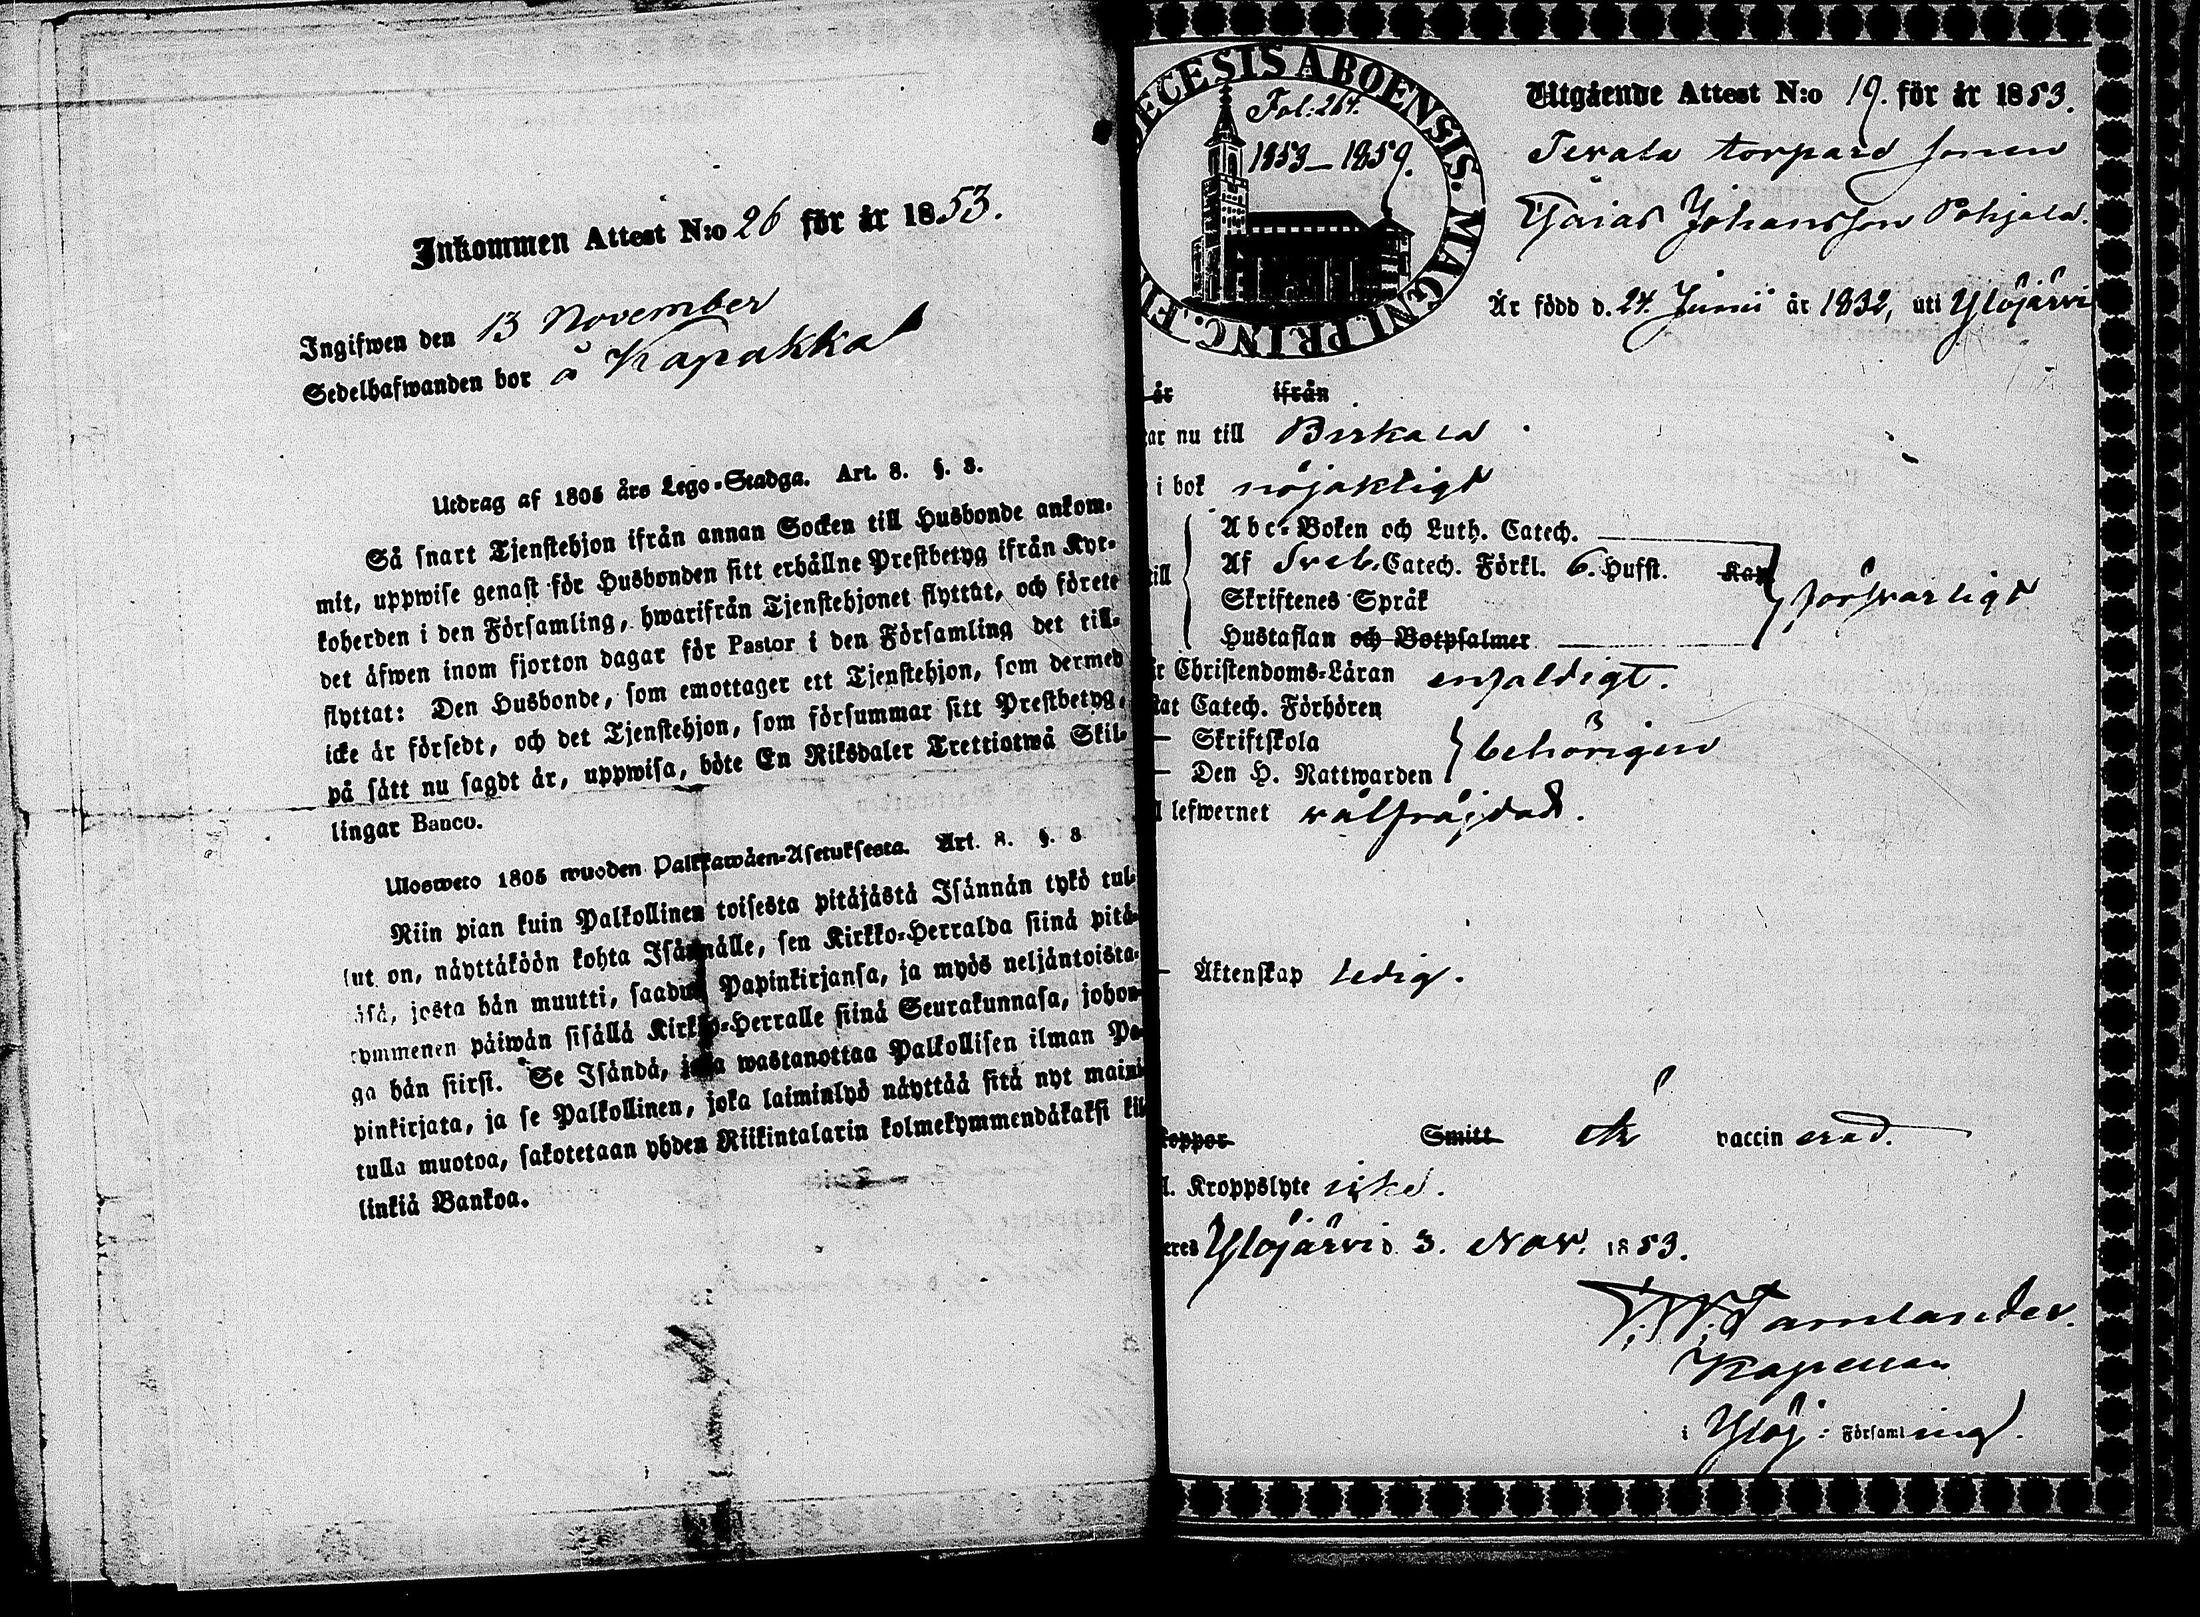 Inkommen Attest N:o 26 för år 1853.
Ingifwen den 13 November
Sedelhafwanden bor å Kapakka
Utdrag af 1805 års Lego-Stadga. Art. 8. §. 8.
Så snart Tjenstehjon ifrån annan Socken till Husbonde ankom-
mit, uppwise genast för Husbonden sitt erhållne Prestbetyg ifrån Kyr-
koherden i den Församling, hwarifrån Tjenstehjonet flyttat, och förete
det äfwen inom fjorton dagar för Pastor i den Församling det till-
flyttat: Den Husbonde, som emottager ett Tjenstehjon, som dermed
icke är försedt, och det Tjenstehjon, som försummar sitt Prestbetyg,
på sätt nu sagdt är, uppwisa, böte En Riksdaler Trettiotwå Skil-
lingar Banco.
Ulosweto 1805 wuoden Palkkawäen-Asetuksesta. Art. 8. §. 8
Niin pian kuin Palkollinen toisesta pitäjästä Isännän tykö tul-
lut on, näyttäköön kohta Isännälle, sen Kirkko-Herralda siinä pitä-
äsä, josta hän muutti, saadun Papinkirjansa, ja myös neljäntoista-
kymmenen päiwän sisällä Kirkko-Herralle siinä Seurakunnasa, johon-
ga hän siirsi. Se Isändä, joka wastanottaa Palkollisen ilman Pa-
pinkirjata, ja se Palkollinen, joka laiminlyö näyttää sitä nyt maini-
tulla muotoa, sakotetaan yhden Riikintalarin kolmekymmendäkaksi kil-
linkiä Bankoa.
ECESIS ABOENSIS. MAGNI PRINC. FI
Fol. 264.
1853-1859.
Utgående Attest N:o 19. för år 1853.
torpare sonen
Esaias Johansson Pohjala.
Är född d. 24. Junii år 1832, uti Ylöjärvi
år ifrån
ar nu till Birkala
i bok nöjaktigt
Abc-Boken och Luth. Catech.
till Af Sveb. Catech. Förkl. 6. Hufst. Kap försvarligt
Skriftenes Språk
Hustaflan och Botpsalmer
är Christendoms-Läran enfaldigt.
tat Catech. Förhören
— Skriftskola behörigen
— Den H. Nattwarden
l lefwernet välfräjdad.
— Äktenskap ledig.
koppor Smitt Är vaccinerad.
l. Kroppslyte icke.
eres Ylöjärvi d. 3. Nov. 1853.
Kapellan
i Ylöj: Församling.